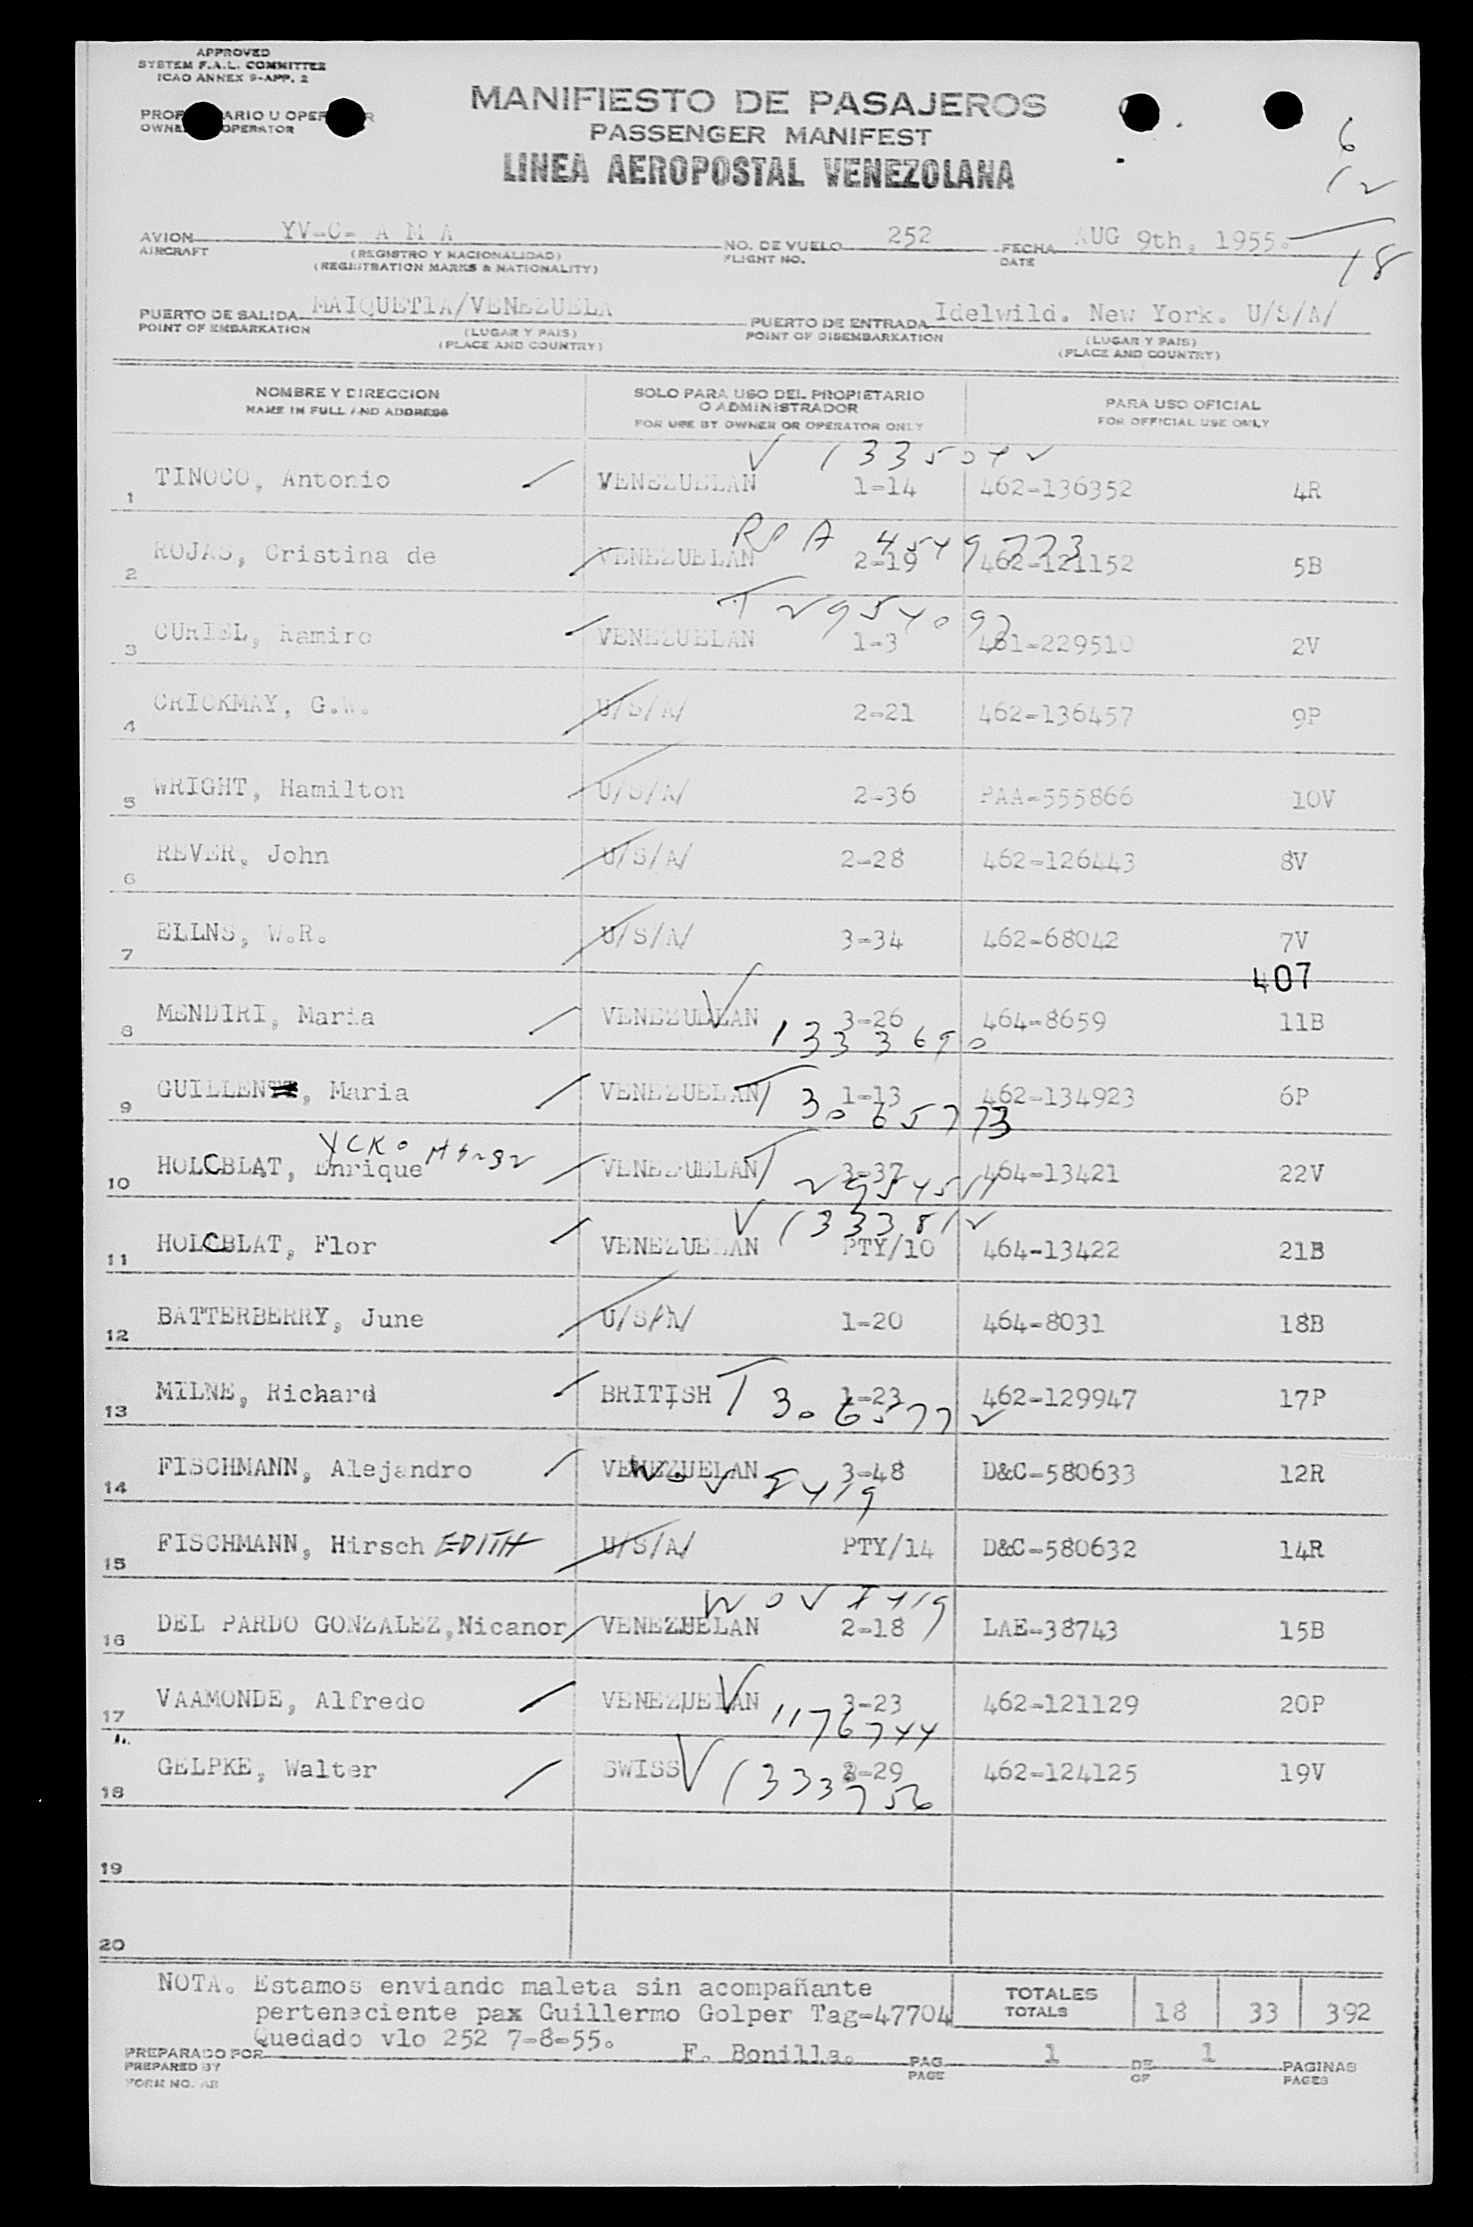 APPROVED
SYSTEM F.A.L. COMMITTEE
ICAO ANNEX 9-APP. 2
MANIFIESTO DE PASAJEROS
PASSENGER MANIFEST
LINEA AEROPOSTAL VENEZOLANA
6
12
18
AVION YV-C- A M A NO. DE VUELO 252 FECHA AUG 9th, 1955.
AIRCRAFT (REGISTRO Y NACIONALIDAD) FLIGHT NO. DATE
(REGISTRATION MARKS & NATIONALITY)
PUERTO DE SALIDA MAIQUETIA/VENEZUELA PUERTO DE ENTRADA Idelwild. New York. U/S/A/
POINT OF EMBARKATION (LUGAR Y PAIS) POINT OF DISEMBARKATION (LUGAR Y PAIS)
(PLACE AND COUNTRY) (PLACE AND COUNTRY)
NOMBRE Y DIRECCION SOLO PARA USO DEL PROPIETARIO O ADMINISTRADOR PARA USO OFICIAL
NAME IN FULL AND ADDRESS FOR USE BY OWNER OR OPERATOR ONLY FOR OFFICIAL USE ONLY
V 1335042
1 TINOCO, Antonio VENEZUELAN 1-14 462-136352 4R
4549773
2 ROJAS, Cristina de VENEZUELAN 2-19 462-121152 5B
T 2954097
3 CURIEL, Ramiro VENEZUELAN 1-3 461-229510 2V
4 CRICKMAY, G.W. U/S/A/ 2-21 462-136457 9P
5 WRIGHT, Hamilton U/S/A/ 2-36 PAA-555866 10V
6 REVER, John U/S/A/ 2-28 462-126443 8V
7 ELLNS, W.R. U/S/A/ 3-34 462-68042 7V
407
8 MENDIRI, Maria VENEZUELAN 3-26 464-8659 11B
V 1333690
9 GUILLEN, Maria VENEZUELAN 1-13 462-134923 6P
T 3065773
10 HOLCBLAT, Enrique VENEZUELAN 3-37 464-13421 22V
T 2954511
V 1333812
11 HOLCBLAT, Flor VENEZUELAN PTY/10 464-13422 21B
12 BATTERBERRY, June U/S/A/ 1-20 464-8031 18B
13 MILNE, Richard BRITISH 1-23 462-129947 17P
T 3065772
14 FISCHMANN, Alejandro VENEZUELAN 3-48 D&C-580633 12R
15 FISCHMANN, Hirsch EDITH U/S/A/ PTY/14 D&C-580632 14R
16 DEL PARDO GONZALEZ,Nicanor VENEZUELAN 2-18 LAE-38743 15B
17 VAAMONDE, Alfredo VENEZUELAN 3-23 462-121129 20P
V 1176744
18 GELPKE, Walter SWISS 3-29 462-124125 19V
V 1333756
19
20
NOTA. Estamos enviando maleta sin acompañante
perteneciente pax Guillermo Golper Tag-47704
Quedado vlo 252 7-8-55.
TOTALES
TOTALS 18 33 392
PREPARADO POR F. Bonilla. PAG. 1 DE 1 PAGINAS
PREPARED BY PAGE OF PAGES
FORM NO.